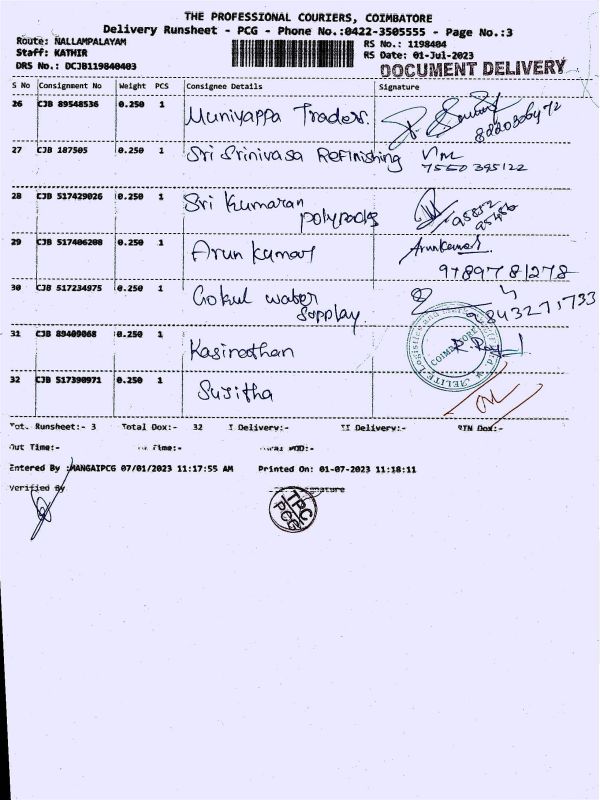 THE PROFESSIONAL COURIERS, COIMBATORE
Delivery Runsheet - PCG - Phone No.:0422-3505555 - Page No.:3
Route: NALLAMPALAYAM
RS No.: 1198404
Staff: KATHIR
RS Date: 01-Jul-2023
DRS No.: DCJB119840403
DOCUMENT DELIVERY
S No Consignment No Weight PCS Consignee Details Signature
26 CJB 89548536 0.250 1 Muniyappa Traders.
27 CJB 187505 0.250 1 Sri Srinivasa Refinishing
7550395122
28 CJB 517429026 0.250 1 Sri Kumaran
polypacks
95852
29 CJB 517406200 0.250 1 Arun Kumar Arunkumar
9789781278
30 CJB 517234975 0.250 1 Gokul water
Supplay.
9843271733
31 CJB 89409068 0.250 1 Kasinathan
COIMBATORE
32 CJB 517390971 0.250 1 Sujitha
Tot. Runsheet:- 3 Total Dox:- 32 I Delivery:- II Delivery:- RTN Dox:-
Out Time:- Time:-
Entered By :MANGAIPCG 07/01/2023 11:17:55 AM Printed On: 01-07-2023 11:18:11
Verified By Signature
TPC
PCG